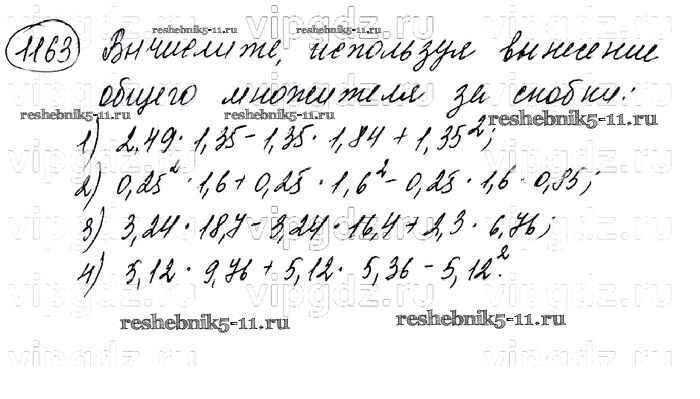 vipgdz.ru vipgdz.ru
reshebnik5-11.ru reshebnik5-11.ru
1163 Вычислите, используя вынесение
общего множителя за скобки:
reshebnik5-11.ru reshebnik5-11.ru reshebnik5-11.ru
1) 2,49 · 1,35 - 1,35 · 1,84 + 1,35²;
2) 0,25² · 1,6 + 0,25 · 1,6² - 0,25 · 1,6 · 0,85;
vipgdz.ru vipgdz.ru vipgdz.ru
3) 3,24 · 18,7 - 3,24 · 16,4 + 2,3 · 6,76;
4) 5,12 · 9,76 + 5,12 · 5,36 - 5,12².
vipgdz.ru vipgdz.ru vipgdz.ru
reshebnik5-11.ru reshebnik5-11.ru
vipgdz.ru vipgdz.ru vipgdz.ru